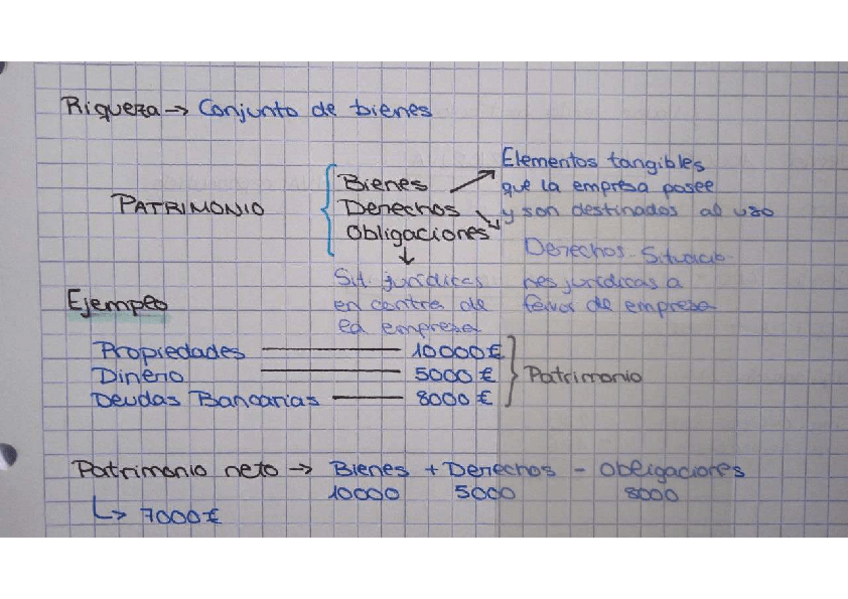 Riqueza → Conjunto de bienes
Elementos tangibles
que la empresa posee
y son destinados al uso
PATRIMONIO { Bienes
Derechos
Obligaciones
Derechos. Situacio-
nes jurídicas a
favor de empresa
Sit. jurídicas
en contra de
la empresa
Ejemplo
Propiedades —— 10000€
Dinero —— 5000€
Deudas Bancarias —— 8000€
} Patrimonio
Patrimonio neto → Bienes + Derechos - Obligaciones
10000 5000 8000
↳ 7000€